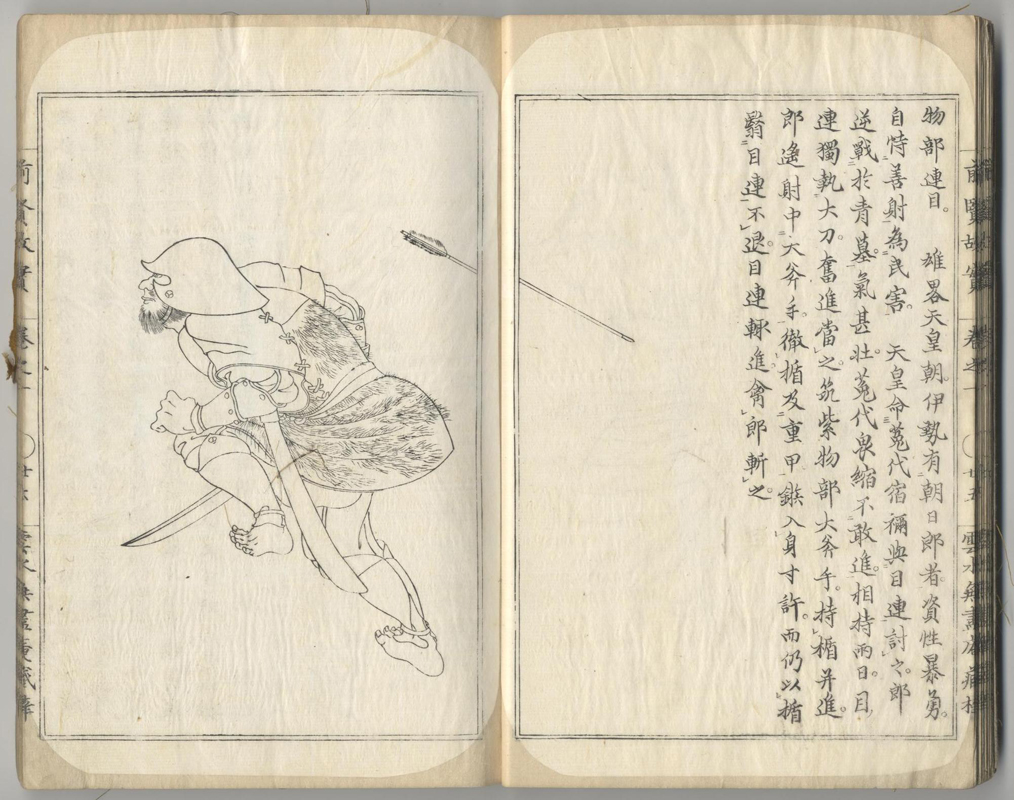 物部連目。 雄畧天皇朝伊勢有朝日郎者。資性暴勇。
自恃善射為民害。 天皇命菟代宿禰與目連討之。郎
逆戰於青墓。氣甚壯。菟代畏縮不敢進。相持兩日。目
連獨執大刀。奮進當之。筑紫物部大斧手。持楯并進。
郎遙射中大斧手。徹楯及重甲。鏃入身寸許。而仍以楯
翳目連不退。目連輙進。禽郎斬之。
前賢故實 卷之一 〇 廿五
前賢故實 卷之一 〇 廿六